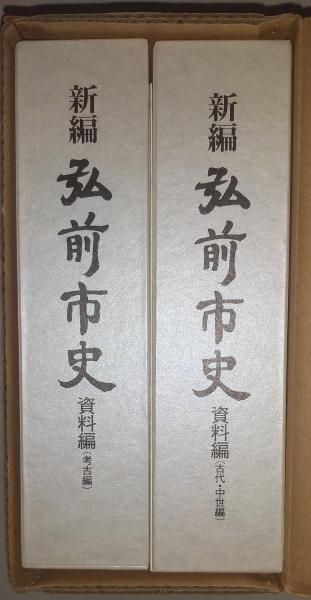 新編 弘前市史 資料編(古代・中世編)
新編 弘前市史 資料編(考古編)